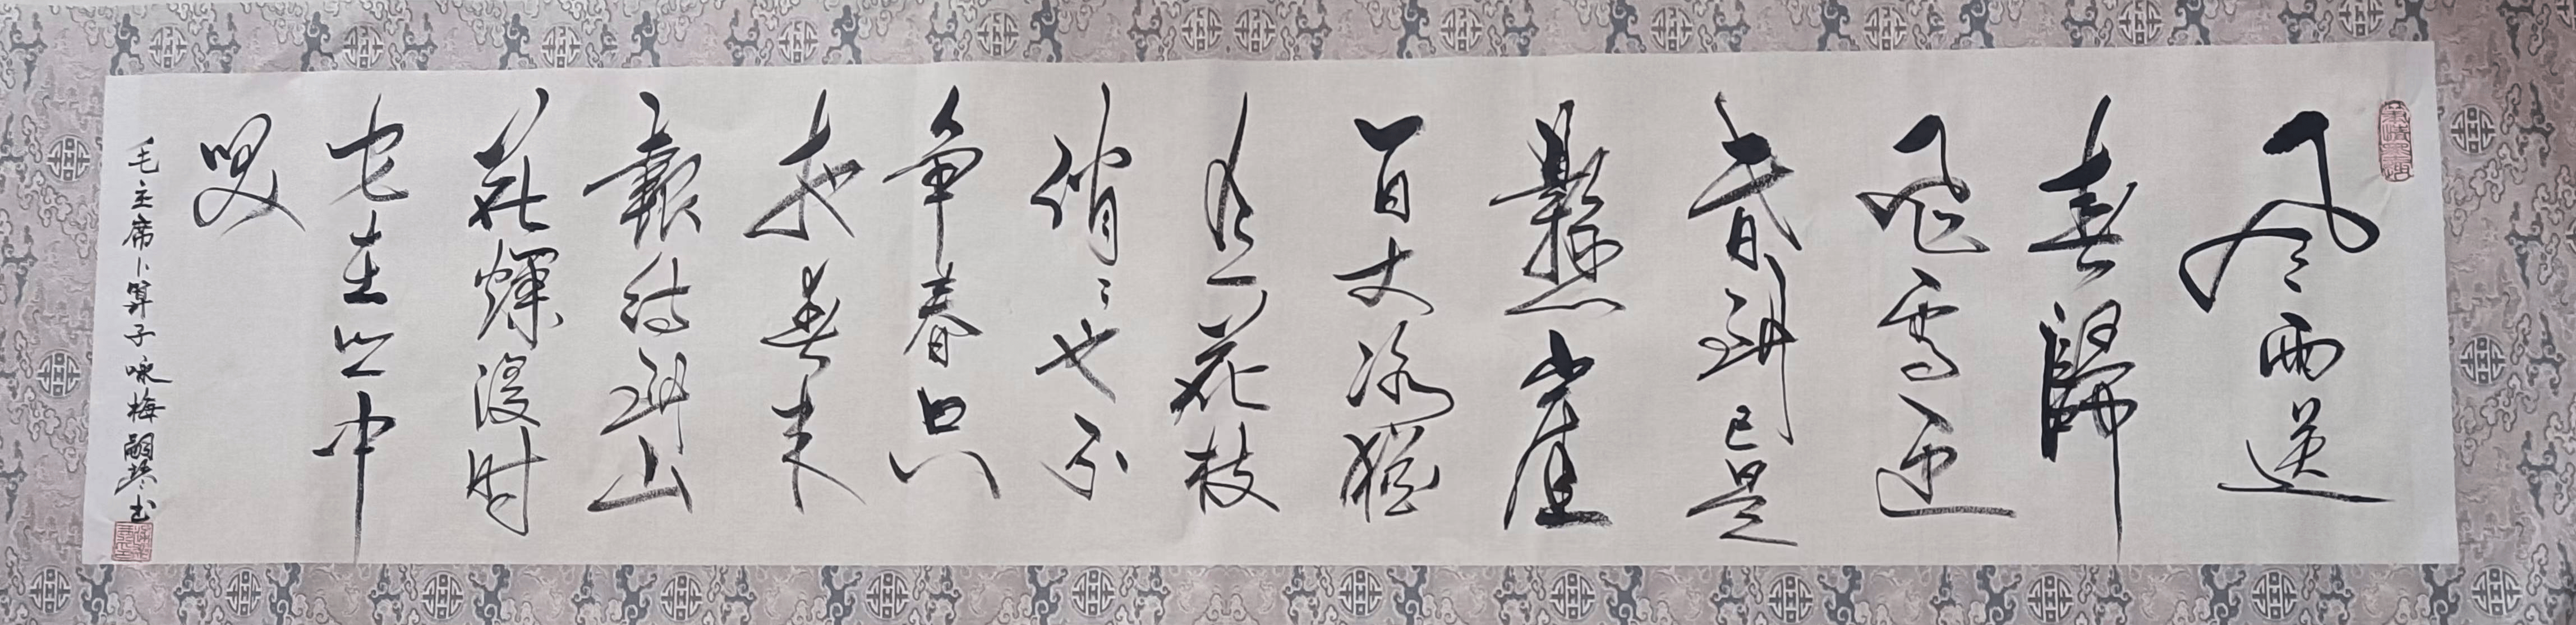 风雨送
春歸
飛雪迎
春到已是
懸崖
百丈冰猶
有花枝
俏〻也不
争春只
把春来
報待到山
花爛漫时
它在丛中
笑
毛主席卜算子咏梅嗣书